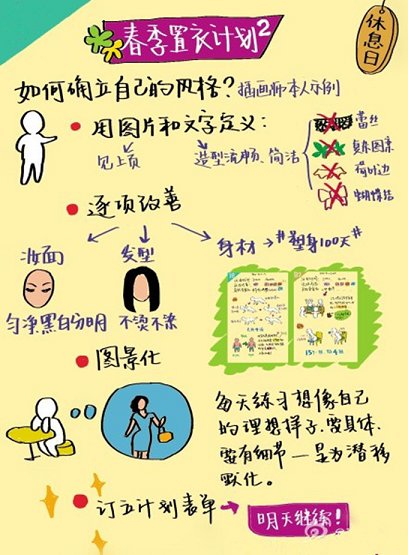 春季置衣计划2
休息日
如何确立自己的风格？插画师本人示例
用图片和文字定义：
见上页
造型流畅、简洁
蕾丝
花边
蝴蝶结
逐项改善
妆面
发型
身材→#塑身100天#
匀净黑白分明
不烫不染
图景化
每天练习想像自己
的理想样子，要具体、
要有细节—是为潜移
默化。
订立计划表单
明天继续！